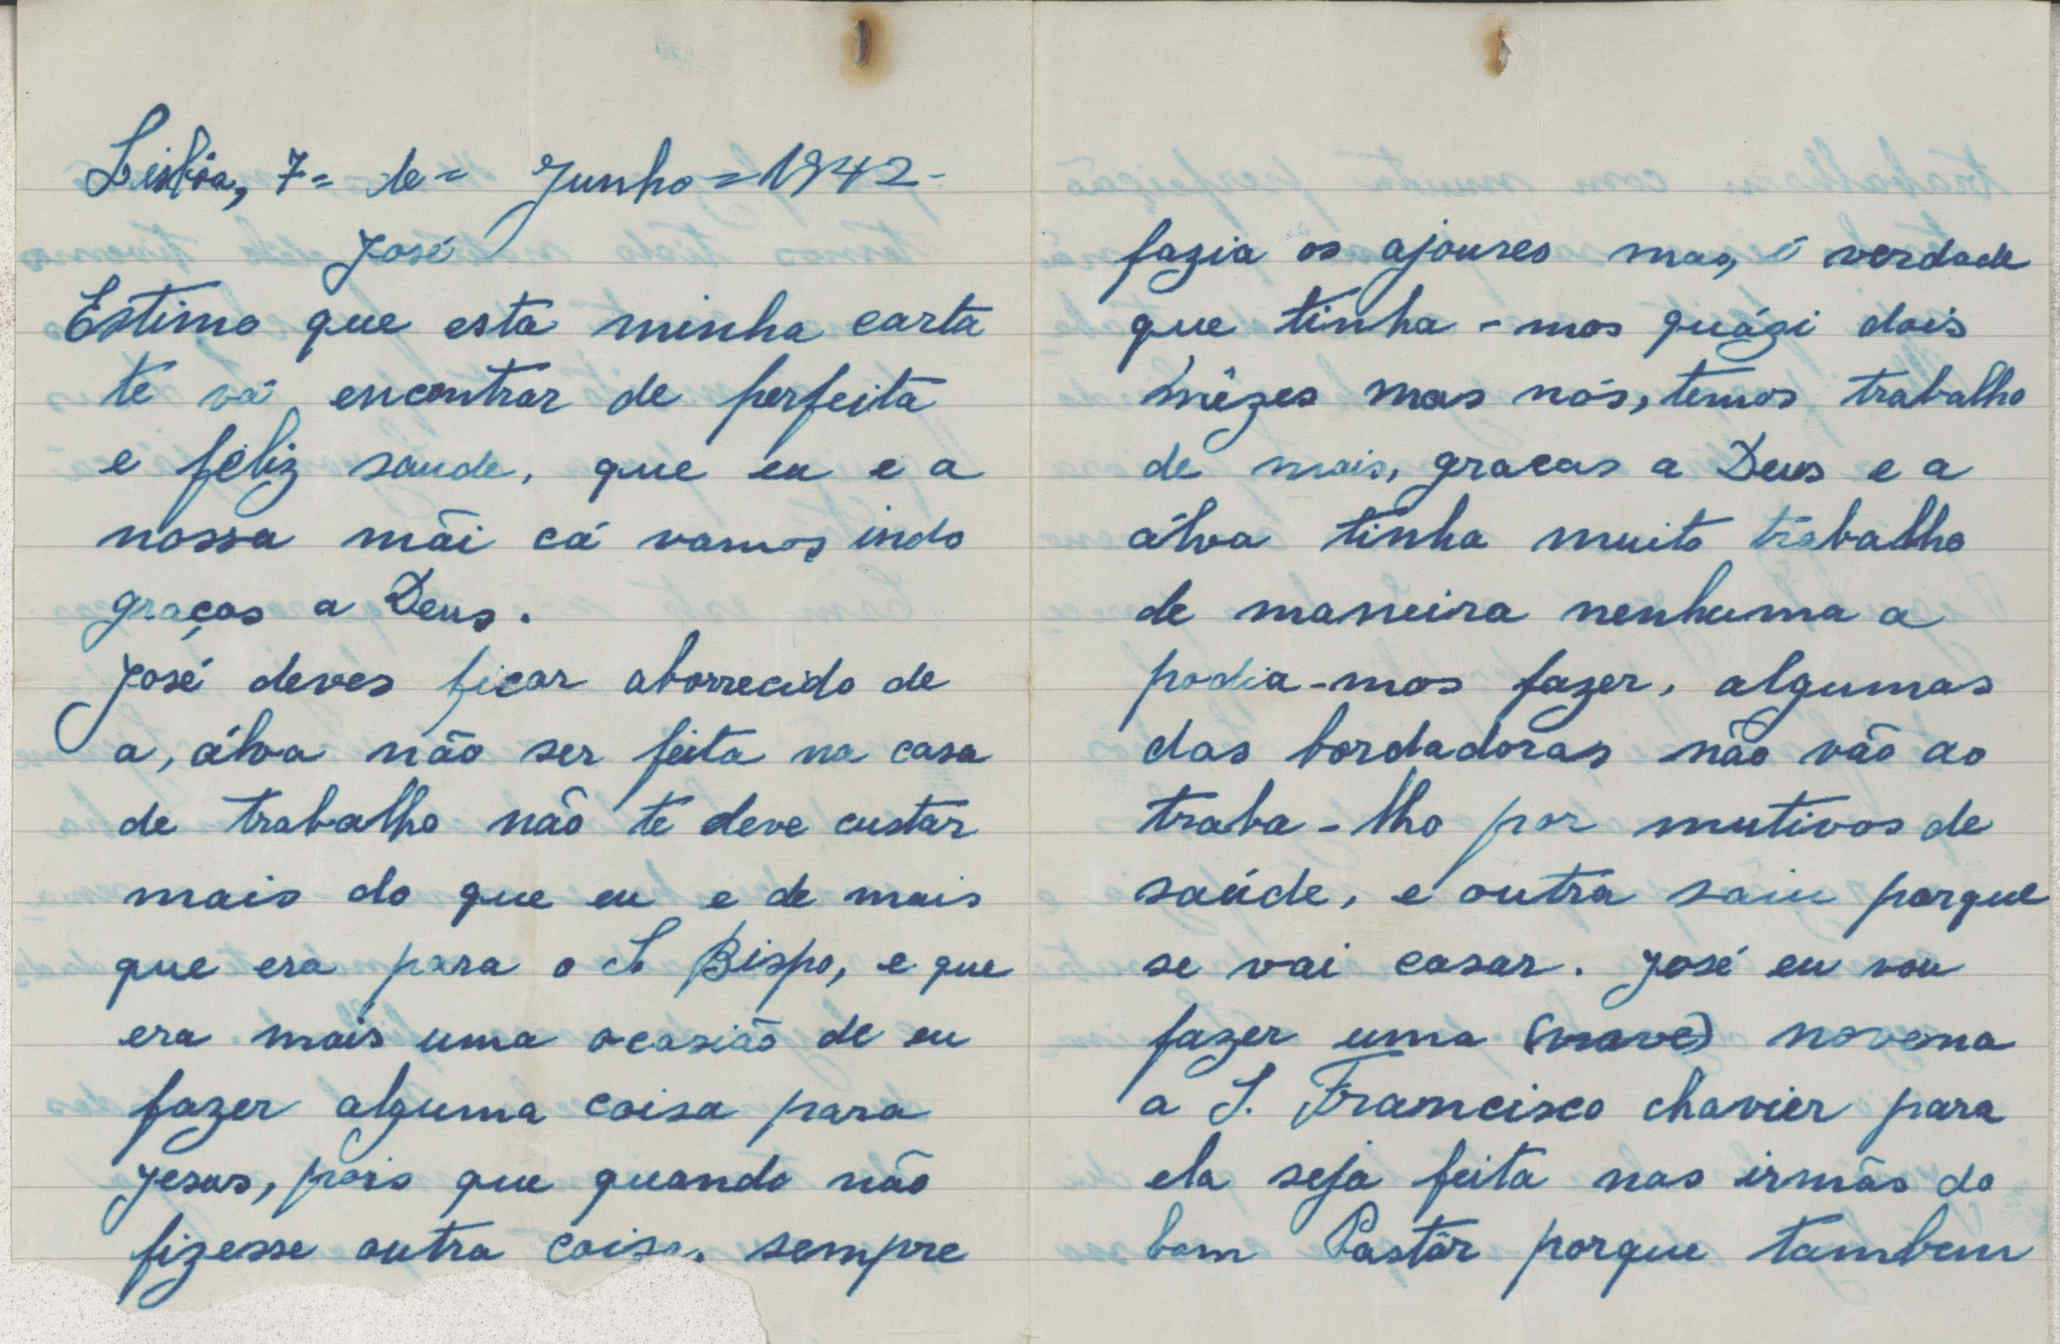 Lisbôa, 7= de= Junho=1942-
José
Estimo que esta minha carta
te vá encontrar de perfeita
e féliz saude, que eu e a
nossa mãi cá vamos indo
graças a Deus.
José deves ficar aborrecido de
a, álva não ser feita na casa
de trabalho não te deve custar
mais do que eu e de mais
que era para o S Bispo, e que
era mais uma ocasião de eu
fazer alguma coisa para
Jesus, pois que quando não
fizesse outra coisa, sempre
fazia os ajoures mas, é verdade
que tinha-mos quázi dois
mêzes mas nós, temos trabalho
de mais, gracas a Deus e a
álva tinha muito trabalho
de maneira nenhuma a
podia-mos fazer, algumas
das bordadoras não vão ao
traba-lho por mutivos de
saúde, e outra saiu porque
se vai casar. José eu vou
fazer uma (nove) novena
a S. Francisco chavier para
ela seja feita nas irmãs do
bom Pastôr porque tambem